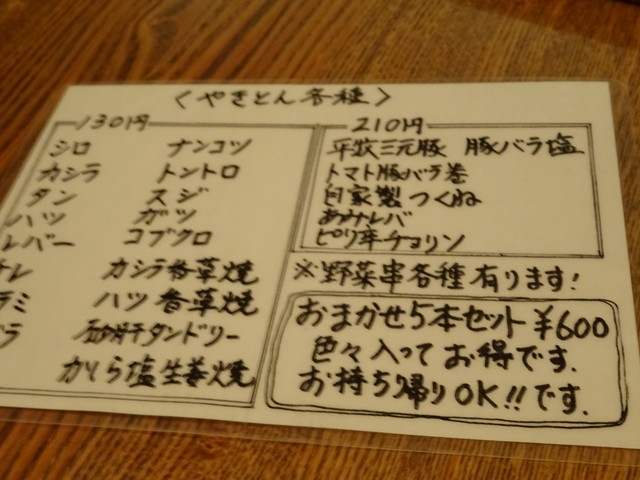 〈やきとん各種〉
130円
シロ ナンコツ
カシラ トントロ
タン スジ
ハツ ガツ
レバー コブクロ
レ カシラ香草焼
ラミ ハツ香草焼
ラ 砂肝タンドリー
かしら塩生姜焼
210円
平牧三元豚 豚バラ塩
トマト豚バラ巻
自家製つくね
あみレバ
ピリ辛チョリソ
※野菜串各種有ります!
おまかせ5本セット ¥600
色々入ってお得です.
お持ち帰りOK!!です.